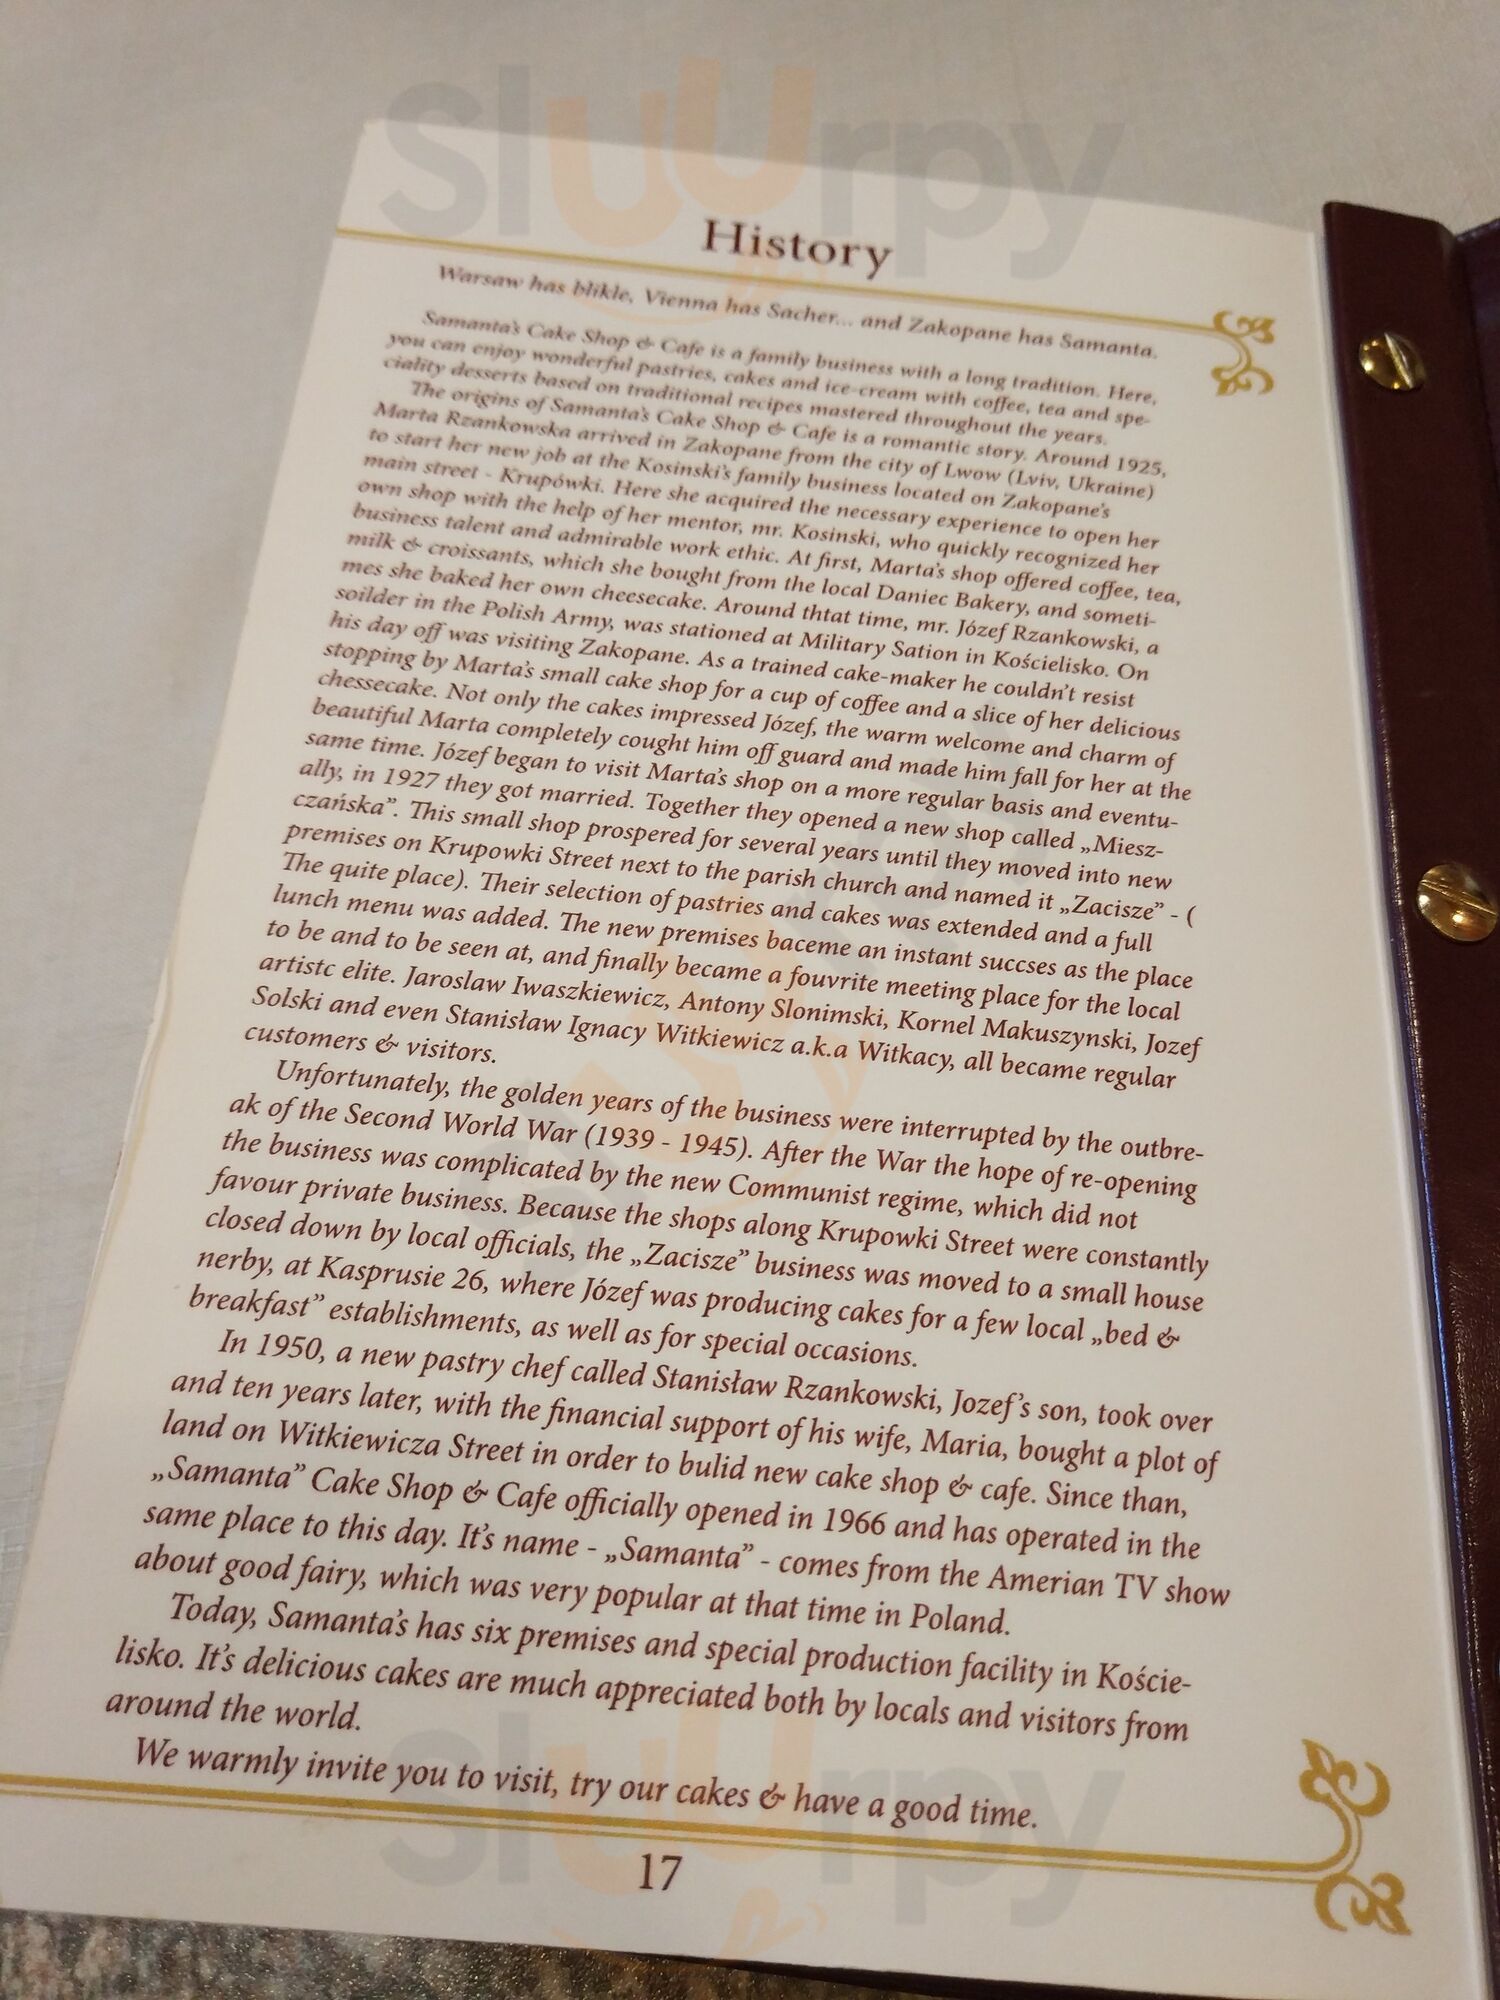 sluurpy
History
Warsaw has blikle, Vienna has Sacher... and Zakopane has Samanta.
Samanta's Cake Shop & Cafe is a family business with a long tradition. Here,
you can enjoy wonderful pastries, cakes and ice-cream with coffee, tea and spe-
ciality desserts based on traditional recipes mastered throughout the years.
The origins of Samanta's Cake Shop & Cafe is a romantic story. Around 1925,
Marta Rzankowska arrived in Zakopane from the city of Lwow (Lviv, Ukraine)
to start her new job at the Kosinski's family business located on Zakopane's
main street - Krupówki. Here she acquired the necessary experience to open her
own shop with the help of her mentor, mr. Kosinski, who quickly recognized her
business talent and admirable work ethic. At first, Marta's shop offered coffee, tea,
milk & croissants, which she bought from the local Daniec Bakery, and someti-
mes she baked her own cheesecake. Around thtat time, mr. Józef Rzankowski, a
soilder in the Polish Army, was stationed at Military Sation in Kościelisko. On
his day off was visiting Zakopane. As a trained cake-maker he couldn't resist
stopping by Marta's small cake shop for a cup of coffee and a slice of her delicious
chessecake. Not only the cakes impressed Józef, the warm welcome and charm of
beautiful Marta completely cought him off guard and made him fall for her at the
same time. Józef began to visit Marta's shop on a more regular basis and eventu-
ally, in 1927 they got married. Together they opened a new shop called „Miesz-
czańska”. This small shop prospered for several years until they moved into new
premises on Krupowki Street next to the parish church and named it „Zacisze” - (
The quite place). Their selection of pastries and cakes was extended and a full
lunch menu was added. The new premises baceme an instant succses as the place
to be and to be seen at, and finally became a fouvrite meeting place for the local
artistc elite. Jaroslaw Iwaszkiewicz, Antony Slonimski, Kornel Makuszynski, Jozef
Solski and even Stanisław Ignacy Witkiewicz a.k.a Witkacy, all became regular
customers & visitors.
Unfortunately, the golden years of the business were interrupted by the outbre-
ak of the Second World War (1939 - 1945). After the War the hope of re-opening
the business was complicated by the new Communist regime, which did not
favour private business. Because the shops along Krupowki Street were constantly
closed down by local officials, the „Zacisze” business was moved to a small house
nerby, at Kasprusie 26, where Józef was producing cakes for a few local „bed &
breakfast” establishments, as well as for special occasions.
In 1950, a new pastry chef called Stanisław Rzankowski, Jozef's son, took over
and ten years later, with the financial support of his wife, Maria, bought a plot of
land on Witkiewicza Street in order to bulid new cake shop & cafe. Since than,
„Samanta” Cake Shop & Cafe officially opened in 1966 and has operated in the
same place to this day. It's name - „Samanta” - comes from the Amerian TV show
about good fairy, which was very popular at that time in Poland.
Today, Samanta's has six premises and special production facility in Koście-
lisko. It's delicious cakes are much appreciated both by locals and visitors from
around the world.
We warmly invite you to visit, try our cakes & have a good time.
17
sluurpy